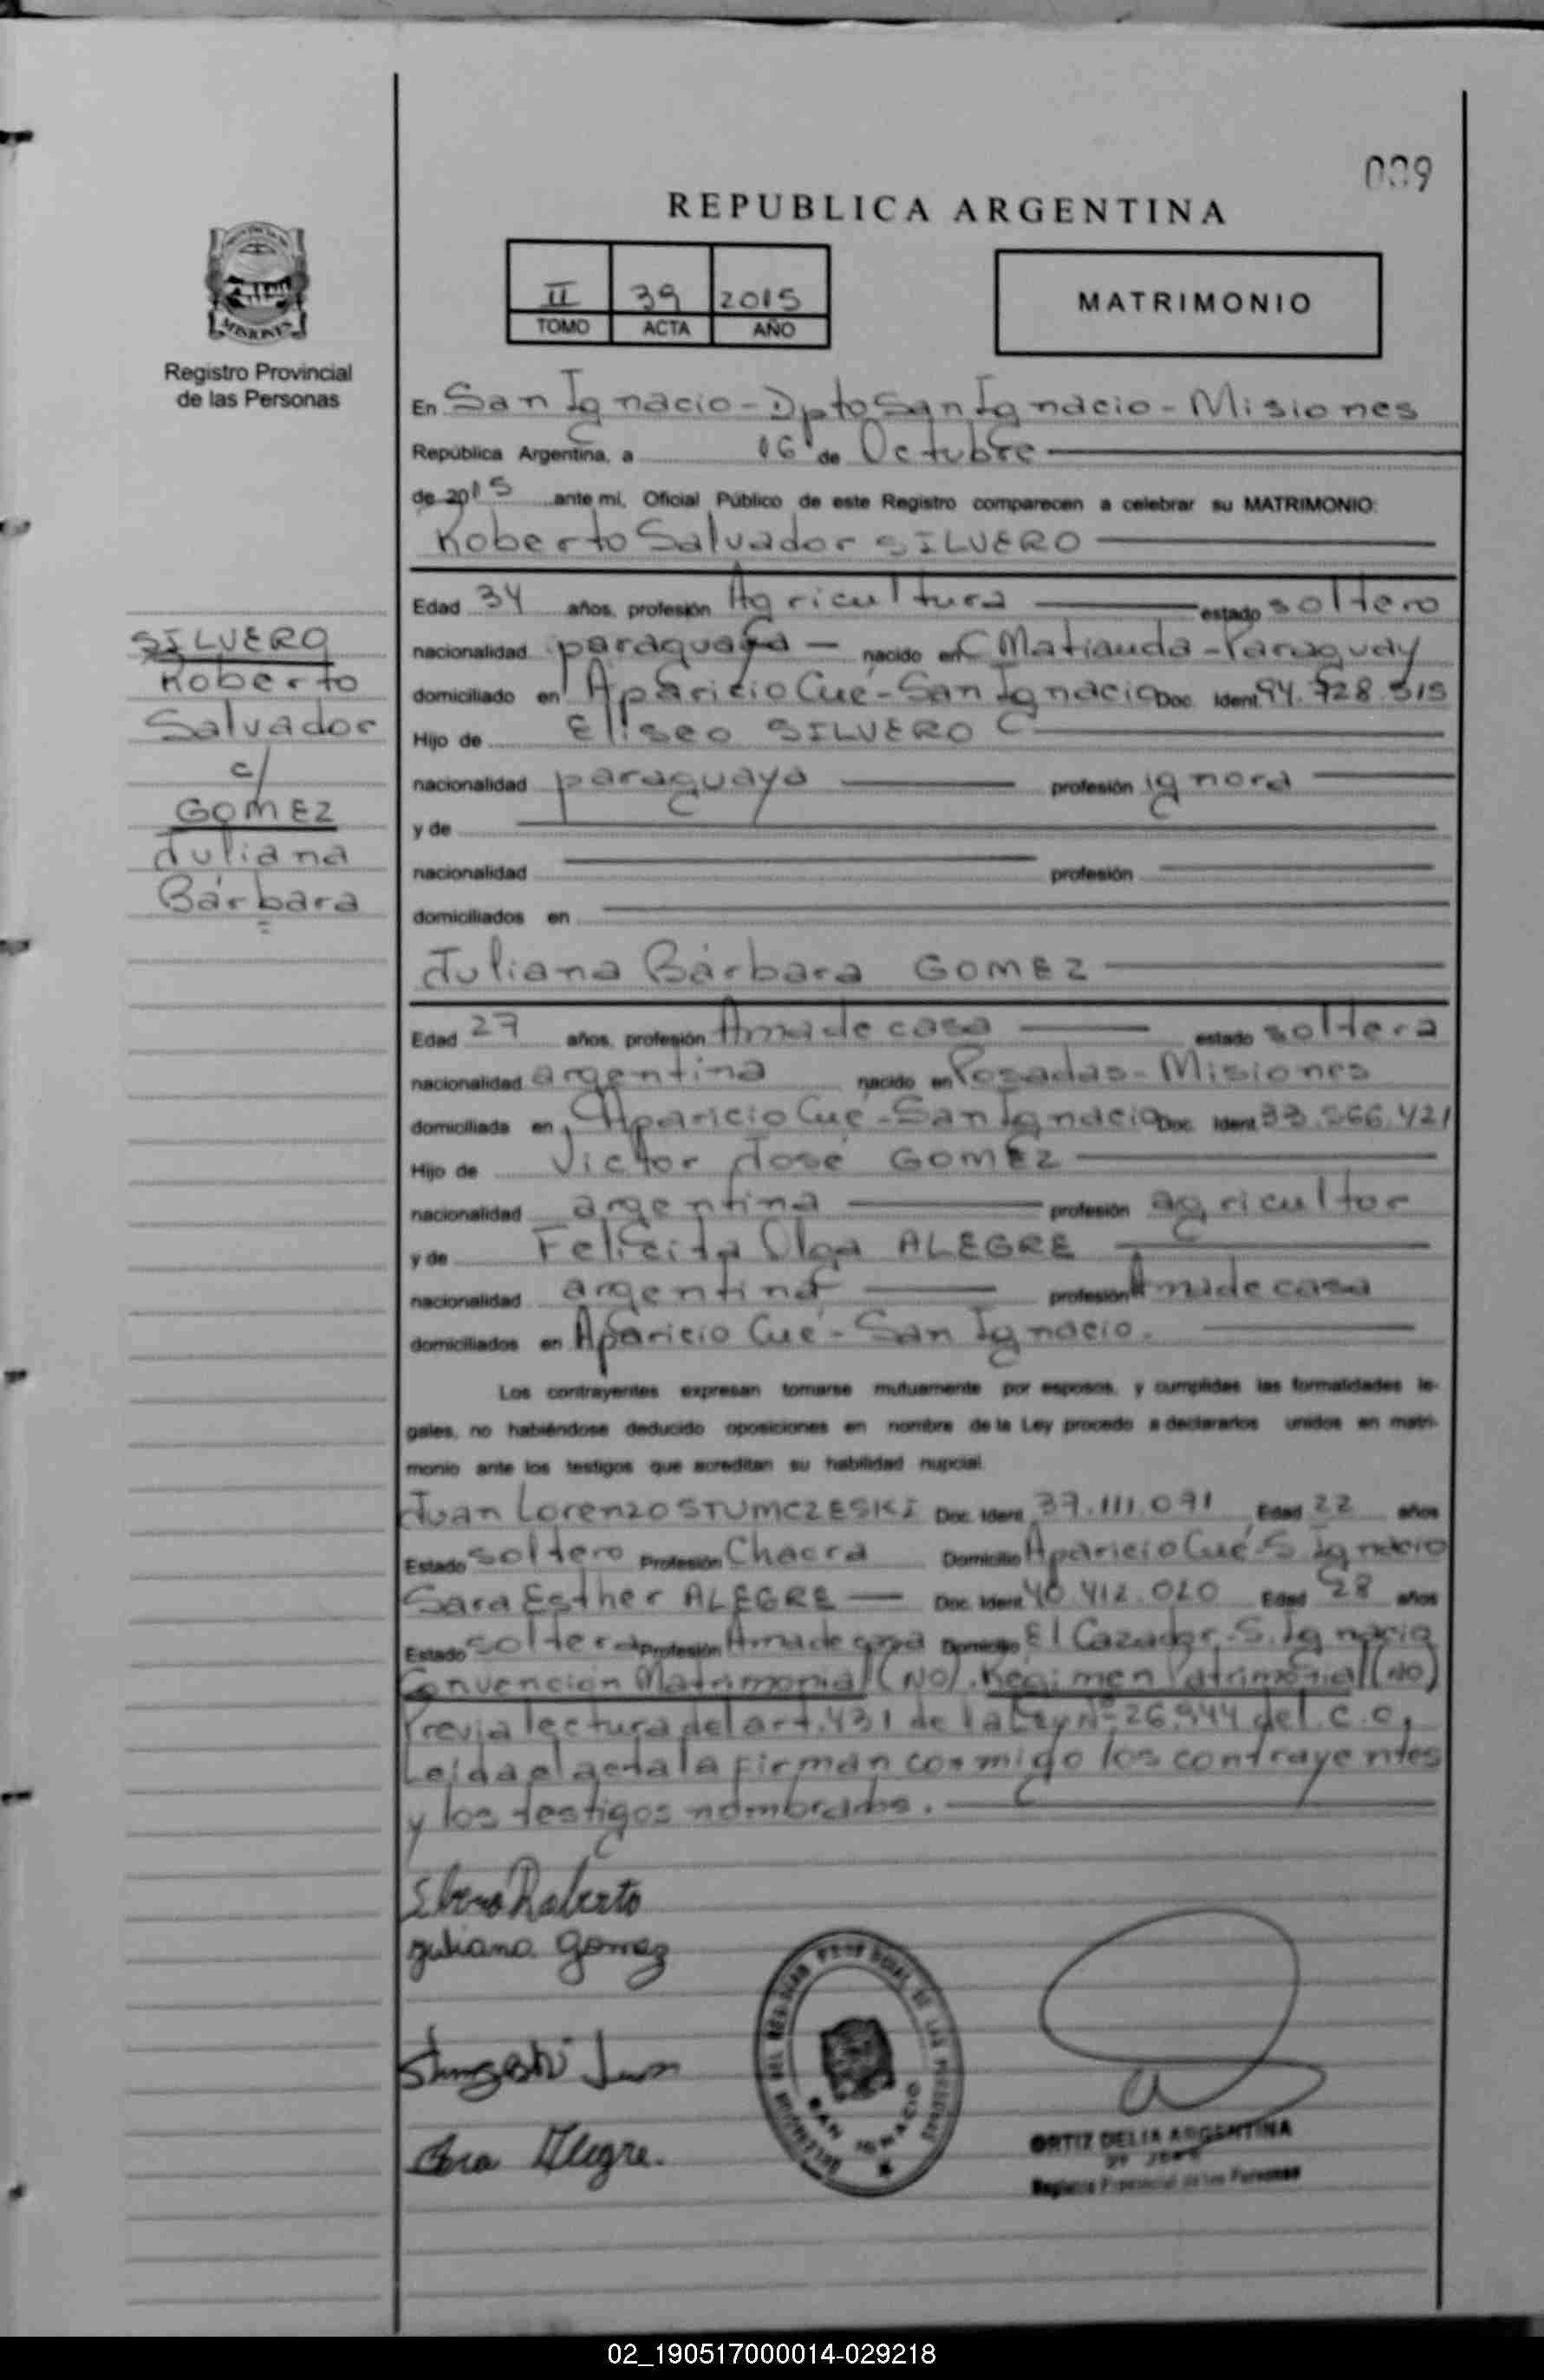 039
REPUBLICA ARGENTINA
II 39 2015
TOMO ACTA AÑO
MATRIMONIO
MISIONES
Registro Provincial
de las Personas
En San Ignacio - Dpto San Ignacio - Misiones
República Argentina, a 16 de Octubre
de 2015 ante mi, Oficial Público de este Registro comparecen a celebrar su MATRIMONIO:
Roberto Salvador SILVERO
SILVERO
Roberto
Salvador
c/
GOMEZ
Juliana
Bárbara
Edad 34 años, profesión Agricultura estado soltero
nacionalidad paraguaya nacido en Matiauda - Paraguay
domiciliado en Aparicio Cué - San Ignacio Doc. Ident. 94.728.515
Hijo de Eliseo SILVERO
nacionalidad paraguaya profesión ignora
y de
nacionalidad profesión
domiciliados en
Juliana Bárbara GOMEZ
Edad 27 años, profesión Ama de casa estado soltera
nacionalidad argentina nacido en Posadas - Misiones
domiciliada en Aparicio Cué - San Ignacio Doc. Ident. 33.566.421
Hijo de Victor José GOMEZ
nacionalidad argentina profesión agricultor
y de Felicita Olga ALEGRE
nacionalidad argentina profesión Ama de casa
domiciliados en Aparicio Cué - San Ignacio.
Los contrayentes expresan tomarse mutuamente por esposos, y cumplidas las formalidades le-
gales, no habiéndose deducido oposiciones en nombre de la Ley procedo a declararlos unidos en matri-
monio ante los testigos que acreditan su habilidad nupcial.
Juan Lorenzo STUMCZESKI Doc. Ident. 37.111.071 Edad 22 años
Estado soltero Profesión Chacra Domicilio Aparicio Cué - S. Ignacio
Sara Esther ALEGRE Doc. Ident. 40.412.020 Edad 28 años
Estado soltera Profesión Ama de casa Domicilio El Cazador - S. Ignacio
Convención Matrimonial (NO). Regimen Patrimonial (NO)
Previa lectura del art. 431 de la Ley Nº 26.944 del C.C.
Leida el acta la firman conmigo los contrayentes
y los testigos nombrados.
Silvero Roberto
Juliana Gomez
Juan
Sara Alegre.
DELEGACION DEL REGISTRO PROVINCIAL DE LAS PERSONAS
SAN IGNACIO
ORTIZ DELIA ARGENTINA
Registro Provincial de las Personas
02_190517000014-029218